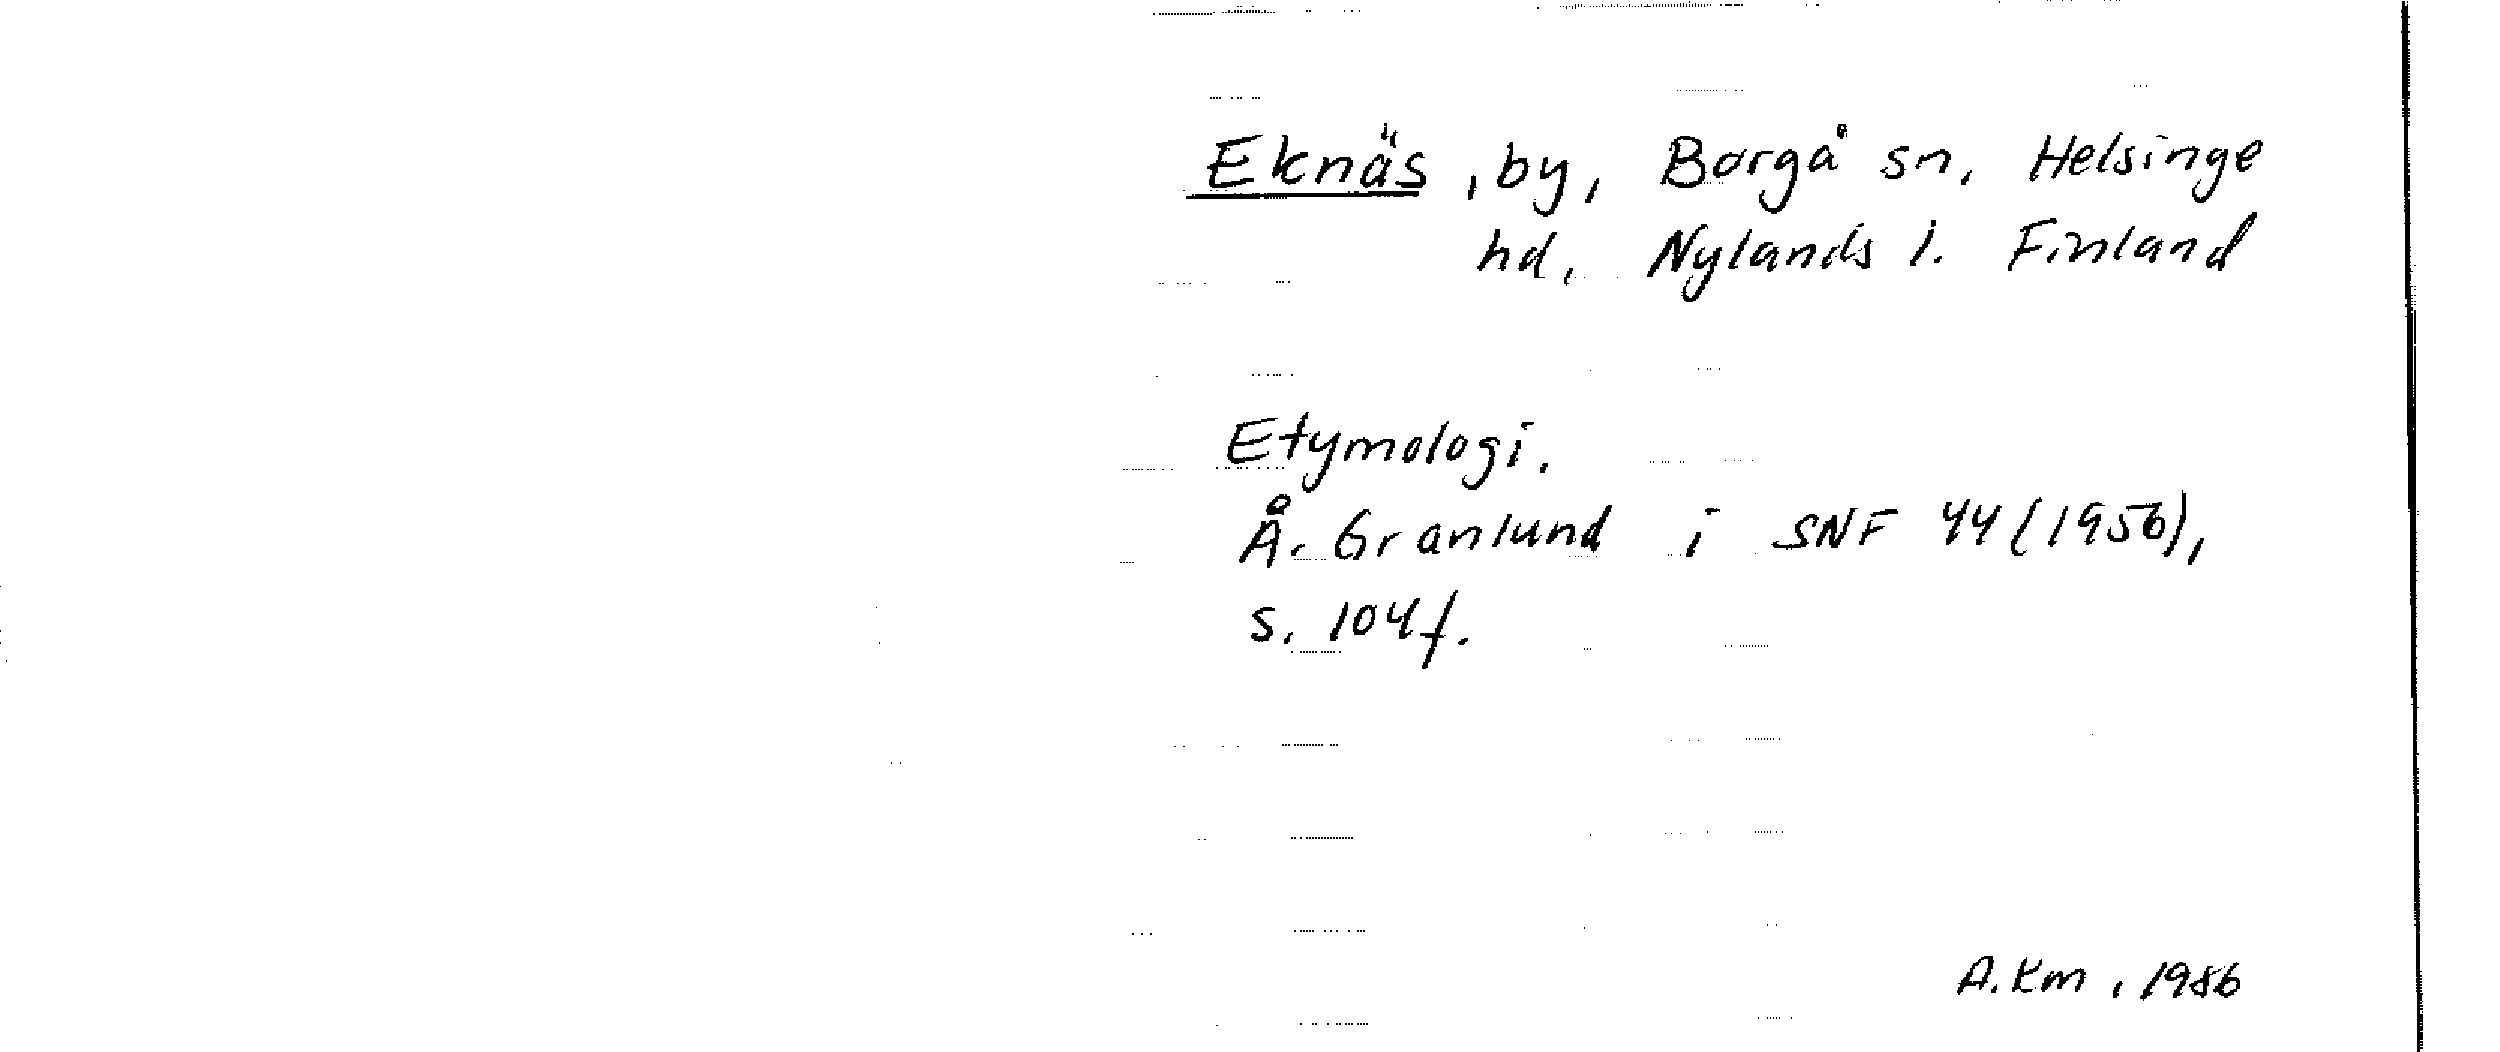 Eknäs, by, Borgå sn, Helsinge
hd, Nylands l. Finland
Etymologi.
Å. Granlund i SNF 44 (1956),
s. 104 f.
A. Km, 1986